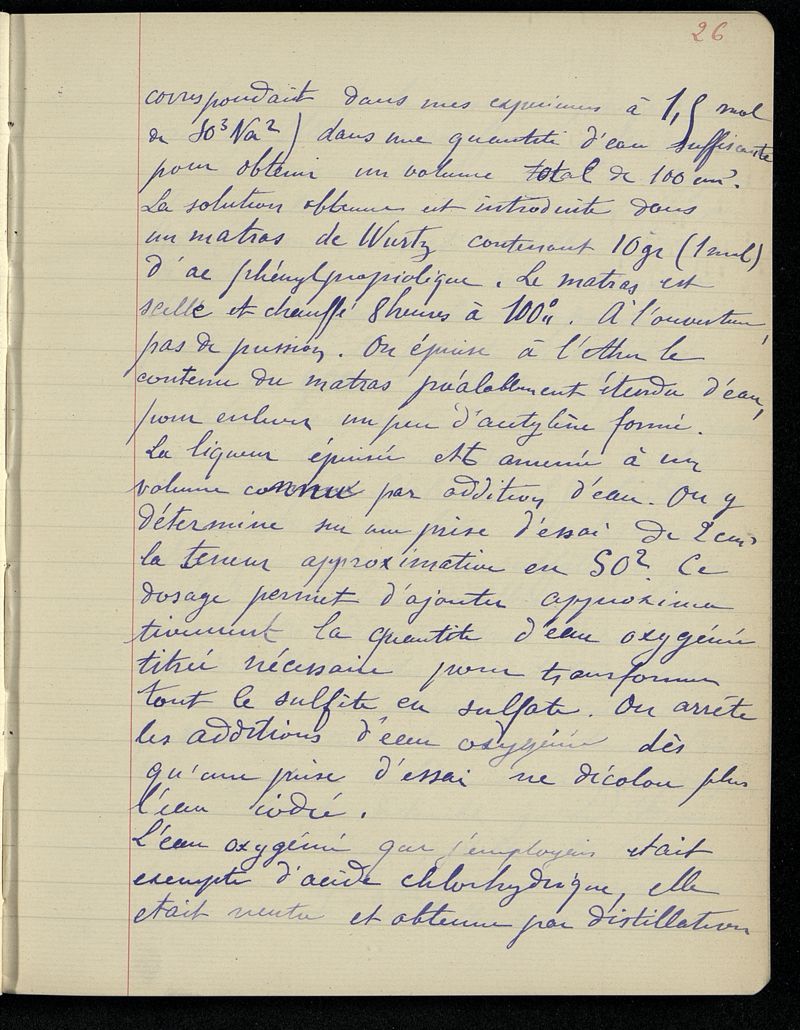 26
correspondait dans mes expériences à 1,5 mol
de SO³Na²) dans une quantité d'eau suffisante
pour obtenir un volume total de 100 cm³.
La solution obtenue est introduite dans
un matras de Wurtz contenant 10gr (1 mol)
d'ac phénylpropiolique. Le matras est
scellé et chauffé 8 heures à 100°. A l'ouverture,
pas de pression. On épuise à l'éther le
contenu du matras préalablement étendu d'eau,
pour enlever un peu d'acétylène formé.
La liqueur épuisée est amenée à un
volume connu par addition d'eau. On y
détermine sur une prise d'essai de 2 cm³
la teneur approximative en SO². Ce
dosage permet d'ajouter approxima
tivement la quantité d'eau oxygénée
titrée nécessaire pour transformer
tout le sulfite en sulfate. On arrête
les additions d'eau oxygénée dès
qu'une prise d'essai ne décolore plus
l'eau iodée.
L'eau oxygénée que j'employais était
exempte d'acide chlorhydrique, elle
était neutre et obtenue par distillation